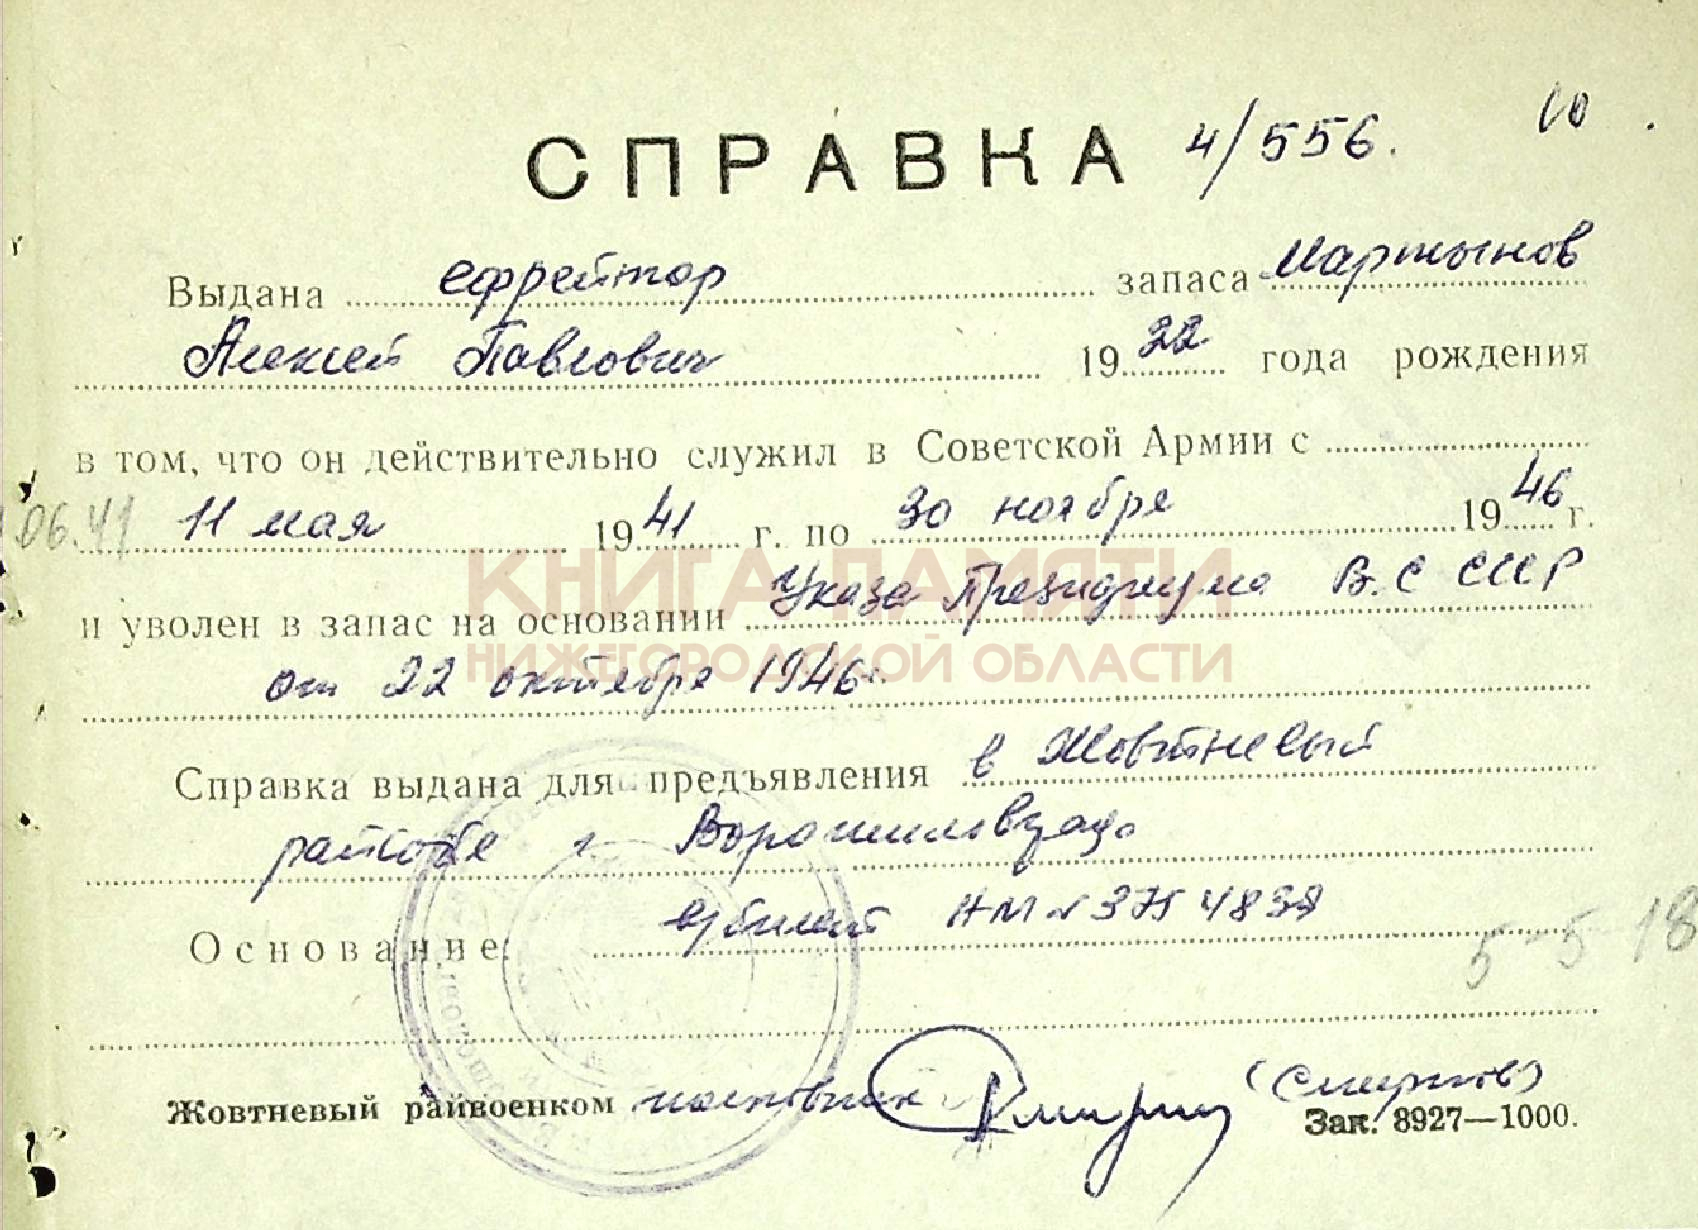 СПРАВКА 4/556.
10
Выдана ефрейтор запаса Мартынов
Алексей Павлович 1922 года рождения
в том, что он действительно служил в Советской Армии с
06.41 11 мая 1941 г. по 30 ноября 1946 г.
КНИГА ПАМЯТИ
и уволен в запас на основании Указа Президиума В.С СССР
НИЖЕГОРОДСКОЙ ОБЛАСТИ
от 22 октября 1946г.
Справка выдана для предъявления в Жовтневый
райсобе г Ворошиловграда
Основание: в/билет НМ №
5-5 18
Жовтневый райвоенком полковник (Смирнов)
Зак. 8927—1000.